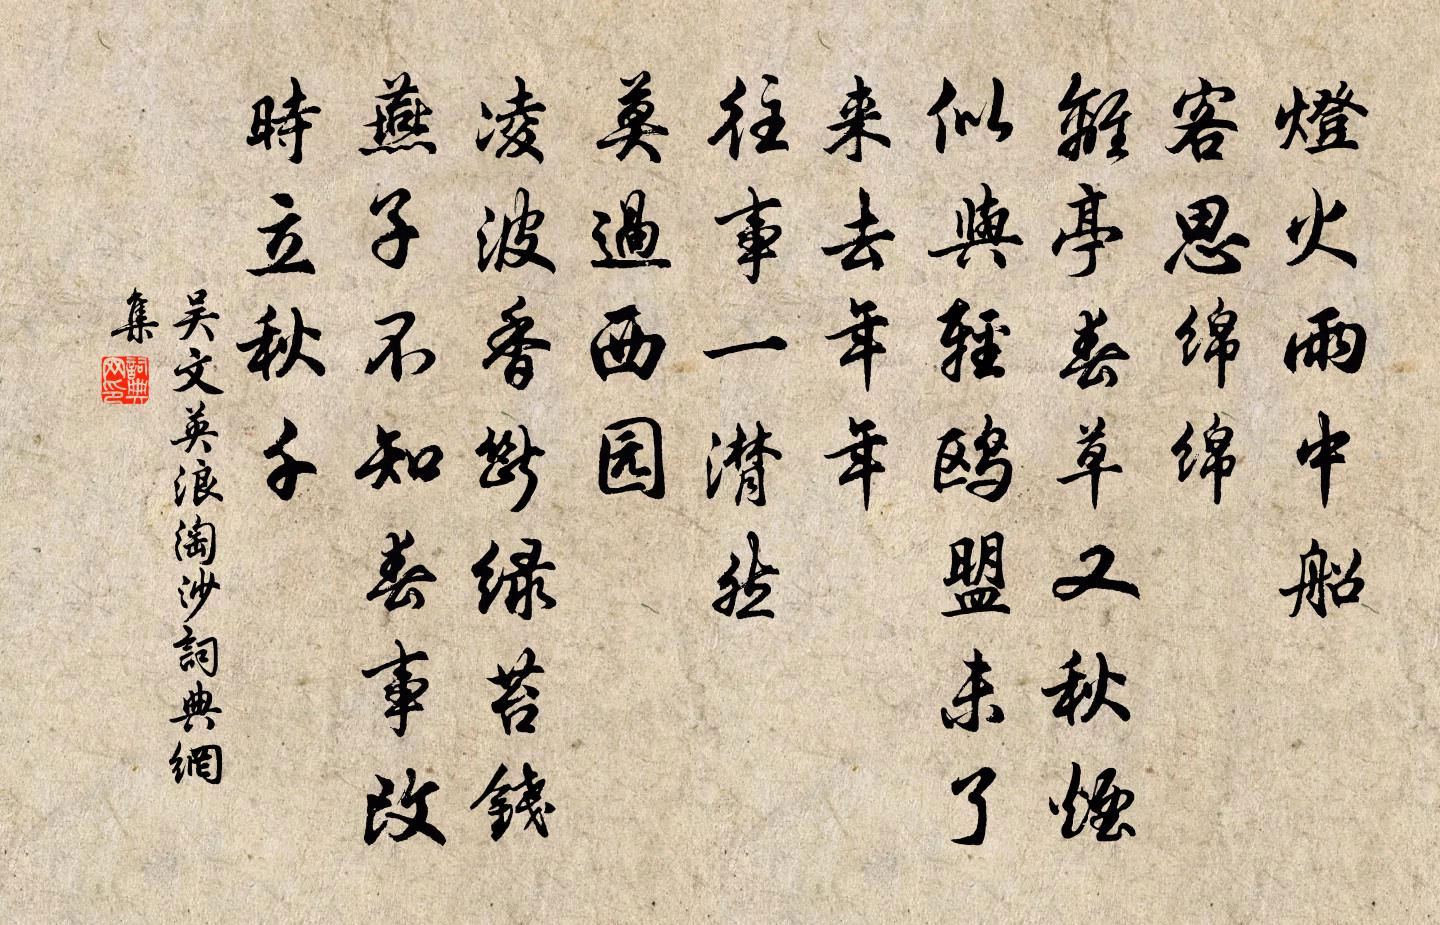 燈火雨中船
客思绵绵
離亭春草又秋煙
似與輕鸥盟未了
来去年年
往事一潸然
莫過西园
凌波香斷绿苔錢
燕子不知春事改
時立秋千
吴文英浪淘沙詞典網
集
詞典网印